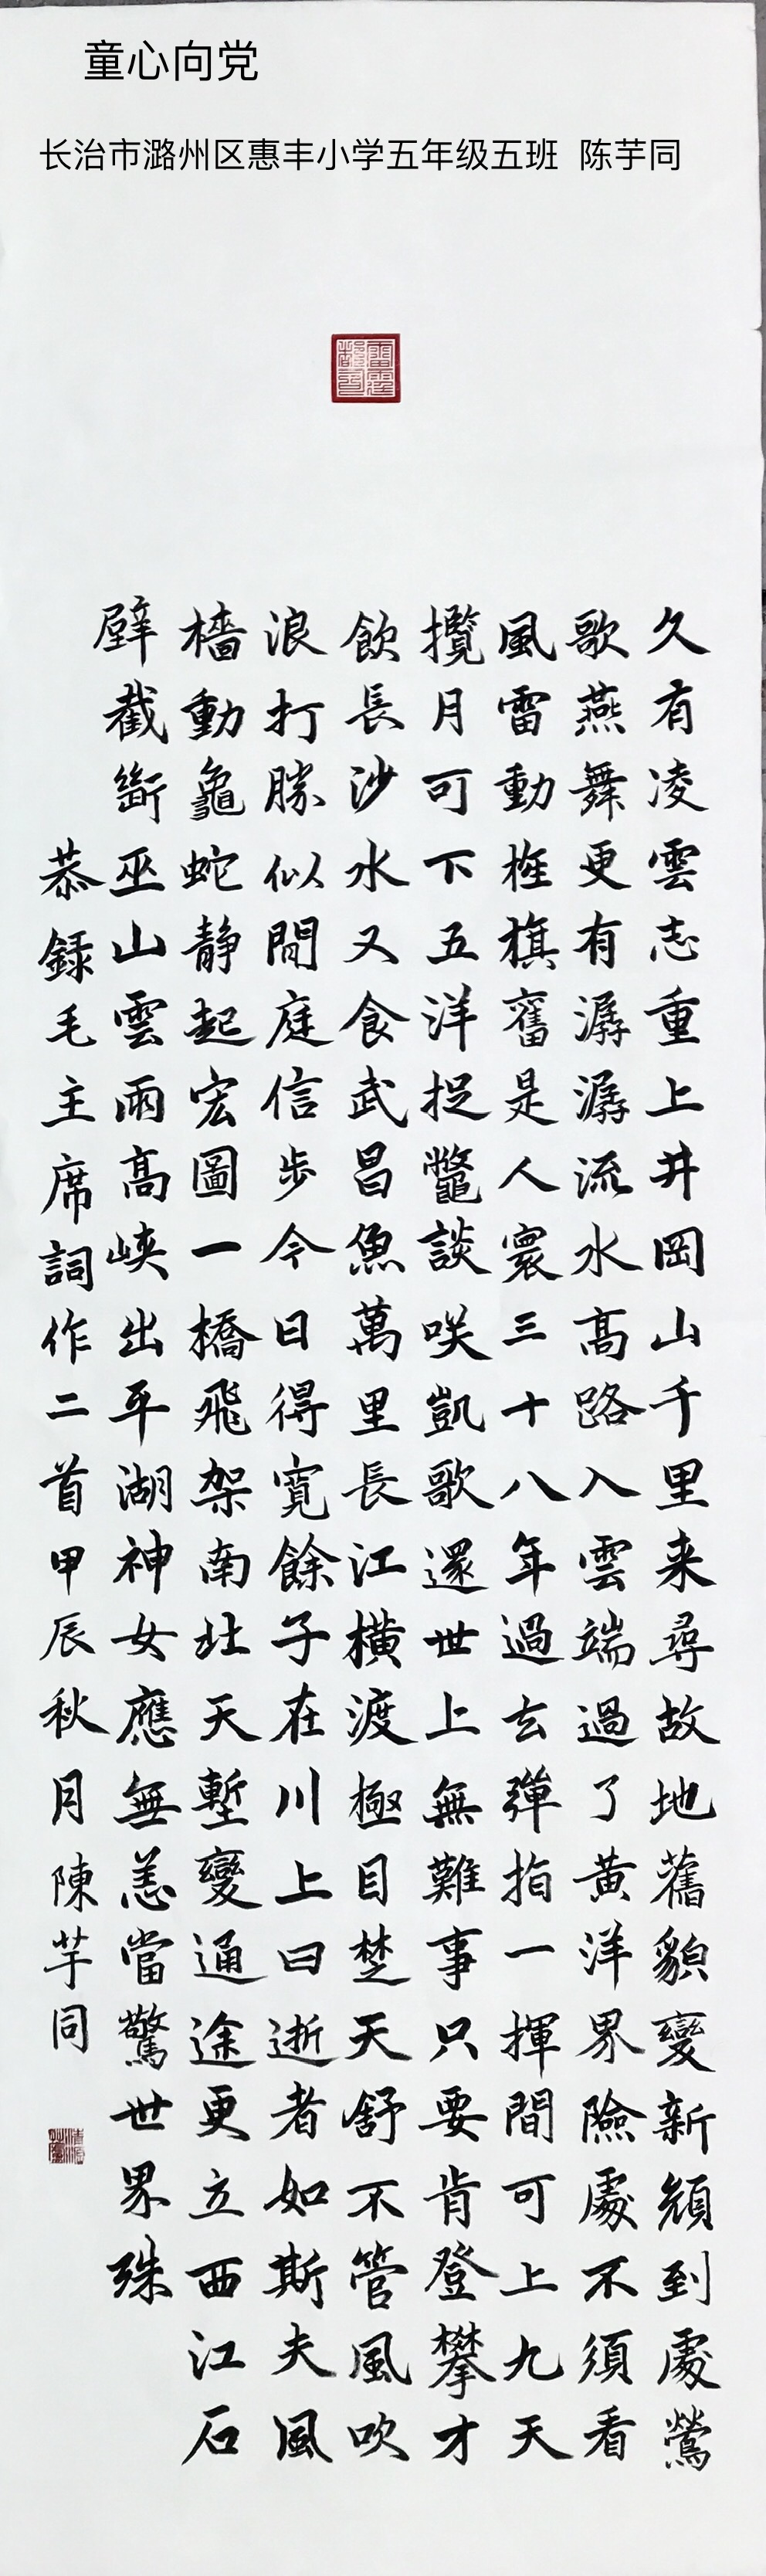 童心向党
长治市潞州区惠丰小学五年级五班 陈芋同
久有凌雲志重上井岡山千里来尋故地舊貌變新顏到處鶯
歌燕舞更有潺潺流水高路入雲端過了黄洋界險處不須看
風雷動旌旗奮是人寰三十八年過去彈指一揮間可上九天
攬月可下五洋捉鱉談咲凱歌還世上無難事只要肯登攀才
飲長沙水又食武昌魚萬里長江橫渡極目楚天舒不管風吹
浪打勝似閒庭信步今日得寬餘子在川上曰逝者如斯夫風
檣動龜蛇静起宏圖一橋飛架南北天塹變通途更立西江石
壁截斷巫山雲雨高峽出平湖神女應無恙當驚世界殊
恭錄毛主席詞作二首甲辰秋月陳芋同